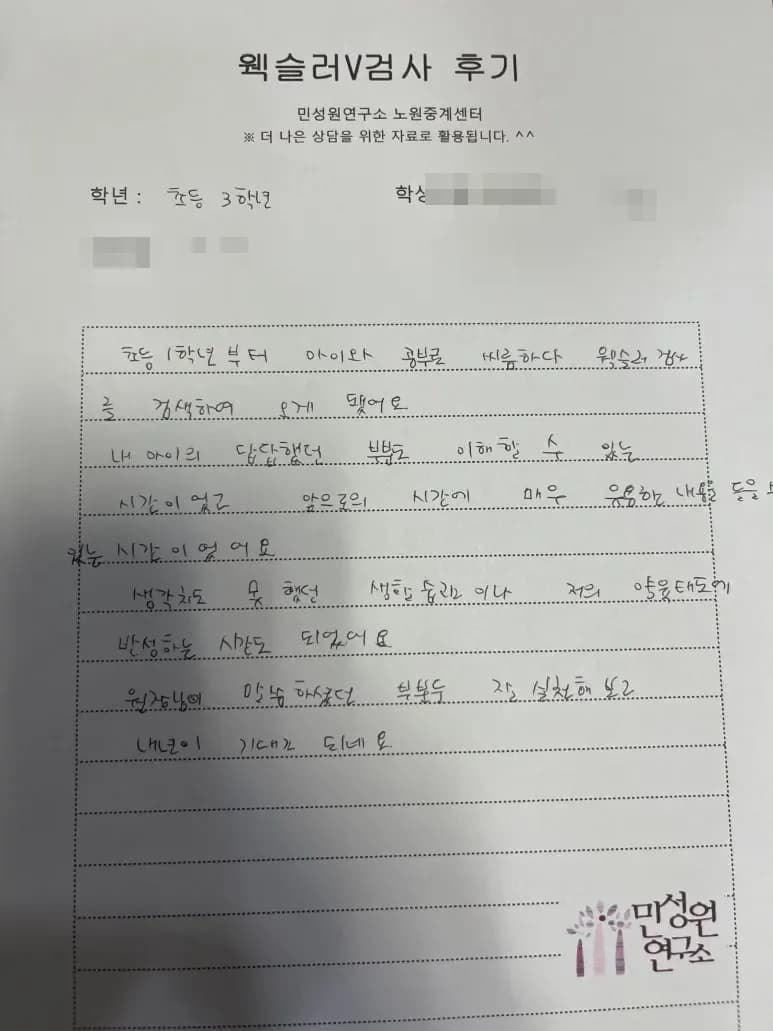 웩슬러V검사 후기
민성원연구소 노원중계센터
※ 더 나은 상담을 위한 자료로 활용됩니다. ^^
학년 : 초등 3학년
초등 1학년부터 아이와 공부로 씨름하다 웩슬러 검사
를 검색하여 오게 됐어요
내 아이의 답답했던 부분도 이해할 수 있는
시간이었고 앞으로의 시간에 매우 유용한 내용을 들을 수
있는 시간이었어요
생각치도 못 했던 생활습관이나 저의 양육태도에
반성하는 시간도 되었어요
원장님이 말씀하셨던 부분두 잘 실천해 보고
내년이 기대고 되네요
민성원
연구소